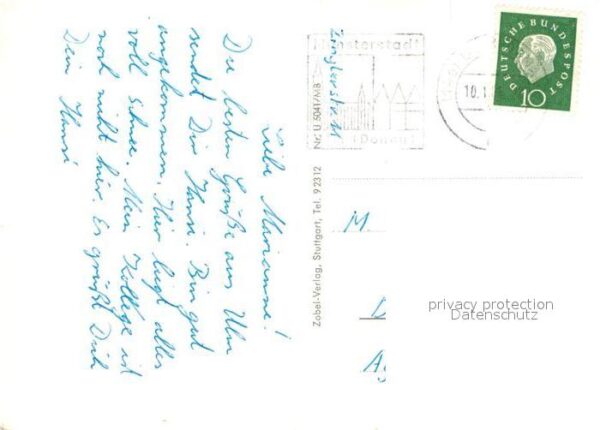 Liebe Marianne!
Die besten Grüße aus Ulm
sendet Dir Hansi. Bin gut
angekommen. Hier liegt alles
voll Schnee. Mein Kollege ist
noch nicht hier. Es grüßt Dich
Dein Hansi
Zobel-Verlag, Stuttgart, Tel. 9 2312
Nr. U 5041/MB
Münsterstadt
(Donau)
10.1
DEUTSCHE BUNDESPOST
10
M.
privacy protection
Datenschutz